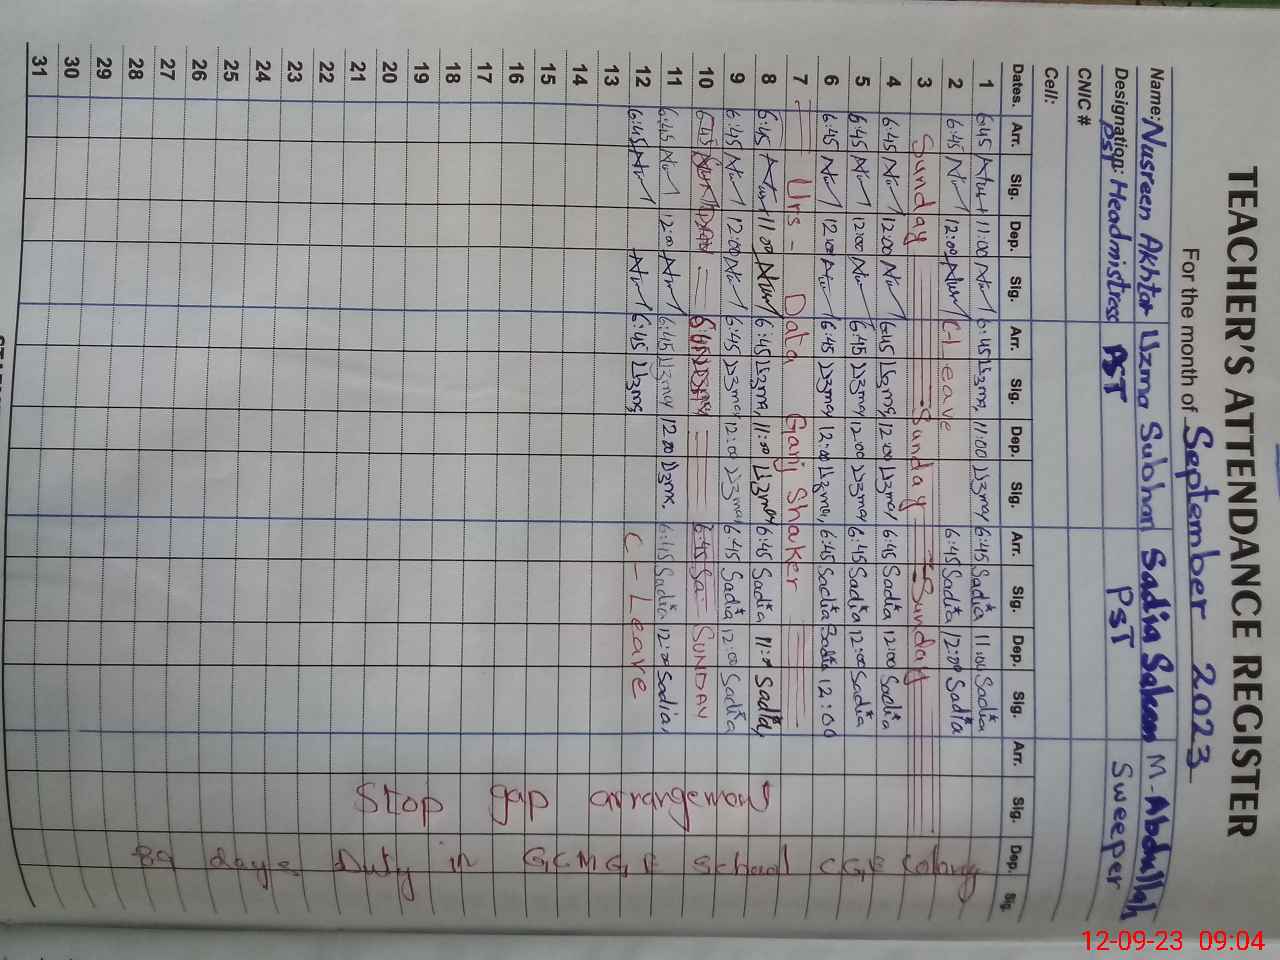 TEACHER'S ATTENDANCE REGISTER
For the month of September 2023
Name: Nusreen Akhtar Uzma Subhan Sadia Saleem M-Abdullah
Designation: Headmistress PST PST Sweeper
PST
CNIC #
Cell:
Dates. Arr. Sig. Dep. Sig. Arr. Sig. Dep. Sig. Arr. Sig. Dep. Sig. Arr. Sig. Dep. Sig.
1 6:45 11:00 6:45 Uzma 11:00 Uzma 6:45 Sadia 11:00 Sadia
2 6:45 12:00 C-Leave 6:45 Sadia 12:00 Sadia
3 Sunday Sunday Sunday
4 6:45 12:00 6:45 Uzma 12:00 Uzma 6:45 Sadia 12:00 Sadia
5 6:45 12:00 6:45 Uzma 12:00 Uzma 6:45 Sadia 12:00 Sadia
6 6:45 12:00 6:45 Uzma 12:00 Uzma 6:45 Sadia Sadia 12:00
7 Urs - Data Ganj Shaker
8 6:45 11:00 6:45 Uzma 11:00 Uzma 6:45 Sadia 11:00 Sadia
9 6:45 12:00 6:45 Uzma 12:00 Uzma 6:45 Sadia 12:00 Sadia
10 6:45 6:45 6:45 Sa SUNDAY
11 6:45 12:00 6:45 Uzma 12:00 Uzma 6:45 Sadia 12:00 Sadia
12 6:45 6:45 Uzma C-Leave
13
14
15
16
17
18
19
20
21
22
23
24
25
26
27
28
29
30
31
Stop gap arrangement
89 days Duty in school colony
12-09-23 09:04